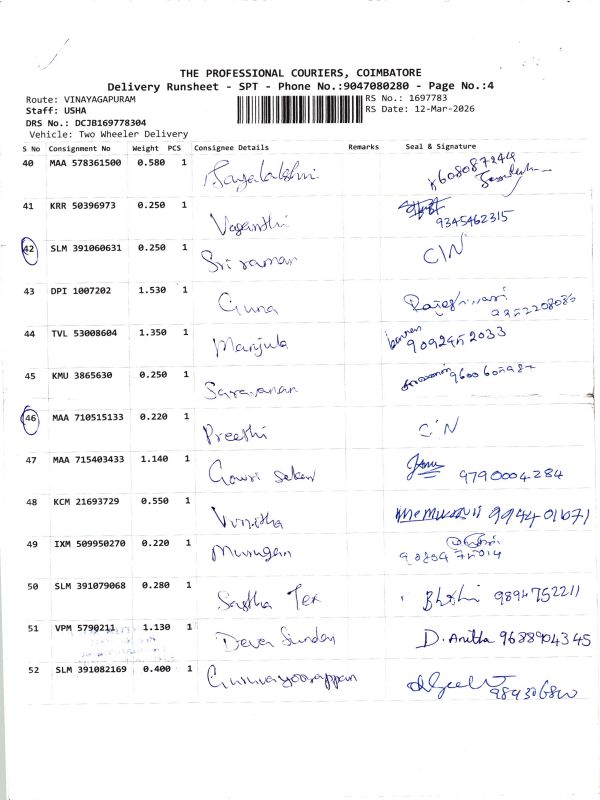 THE PROFESSIONAL COURIERS, COIMBATORE
Delivery Runsheet - SPT - Phone No.:9047080280 - Page No.:4
Route: VINAYAGAPURAM
RS No.: 1697783
Staff: USHA
RS Date: 12-Mar-2026
DRS No.: DCJB169778304
Vehicle: Two Wheeler Delivery
S No Consignment No Weight PCS Consignee Details Remarks Seal & Signature
40 MAA 578361500 0.580 1 Jayalakshmi
41 KRR 50396973 0.250 1 Vasanthi 9345462315
42 SLM 391060631 0.250 1 Sriraman C/N
43 DPI 1007202 1.530 1 Guna Rajeshwari
44 TVL 53008604 1.350 1 Manjula 9092452033
45 KMU 3865630 0.250 1 Saravanan
46 MAA 710515133 0.220 1 Preethi C/N
47 MAA 715403433 1.140 1 Gowri Sekar 9790004284
48 KCM 21693729 0.550 1 Vinitha
49 IXM 509950270 0.220 1 Murugan
50 SLM 391079068 0.280 1 Sastha Tex 9894752211
51 VPM 5790211 1.130 1 Deva Sundar D. Anitha 9688904345
52 SLM 391082169 0.400 1 Guruvayoorappan